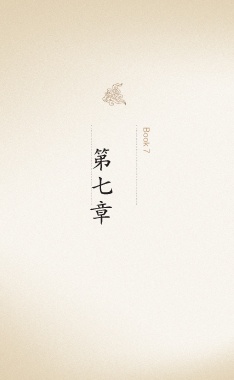 Book 7
第七章